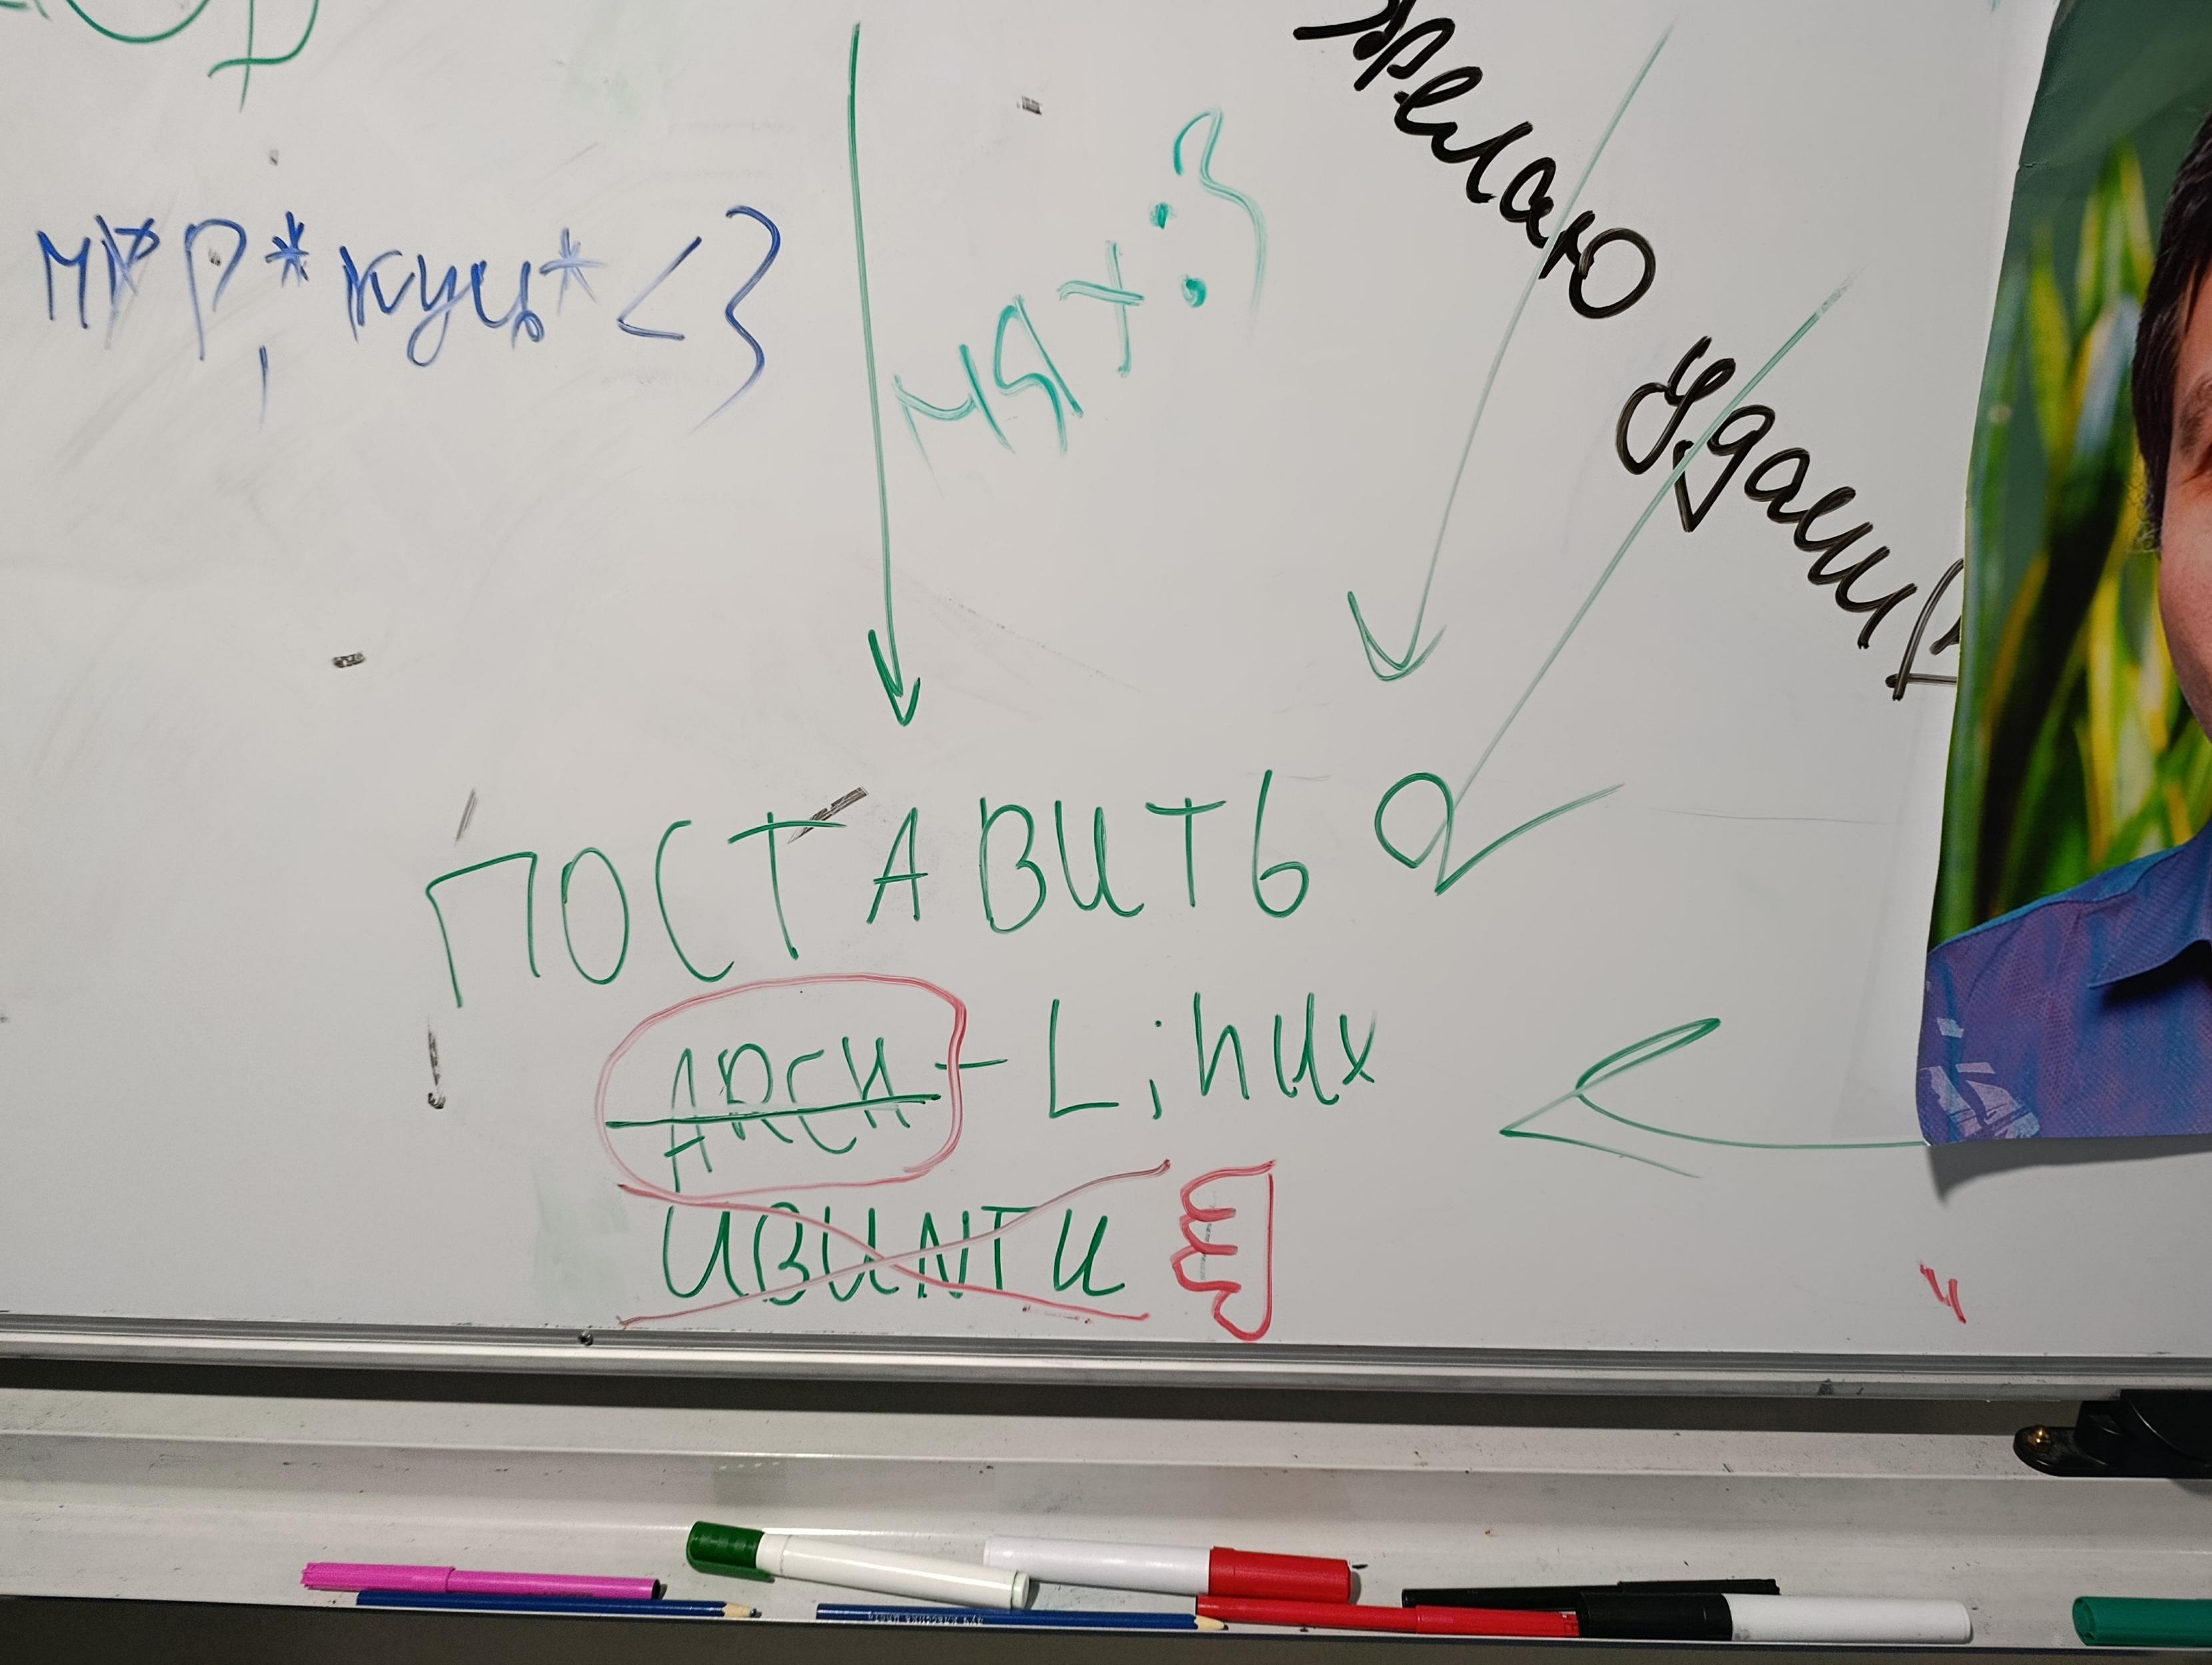 мяр, *кусь* <3
мя+:3
Желаю
удачи
ПОСТАВИТЬ
ARCH-Linux
UBUNTU